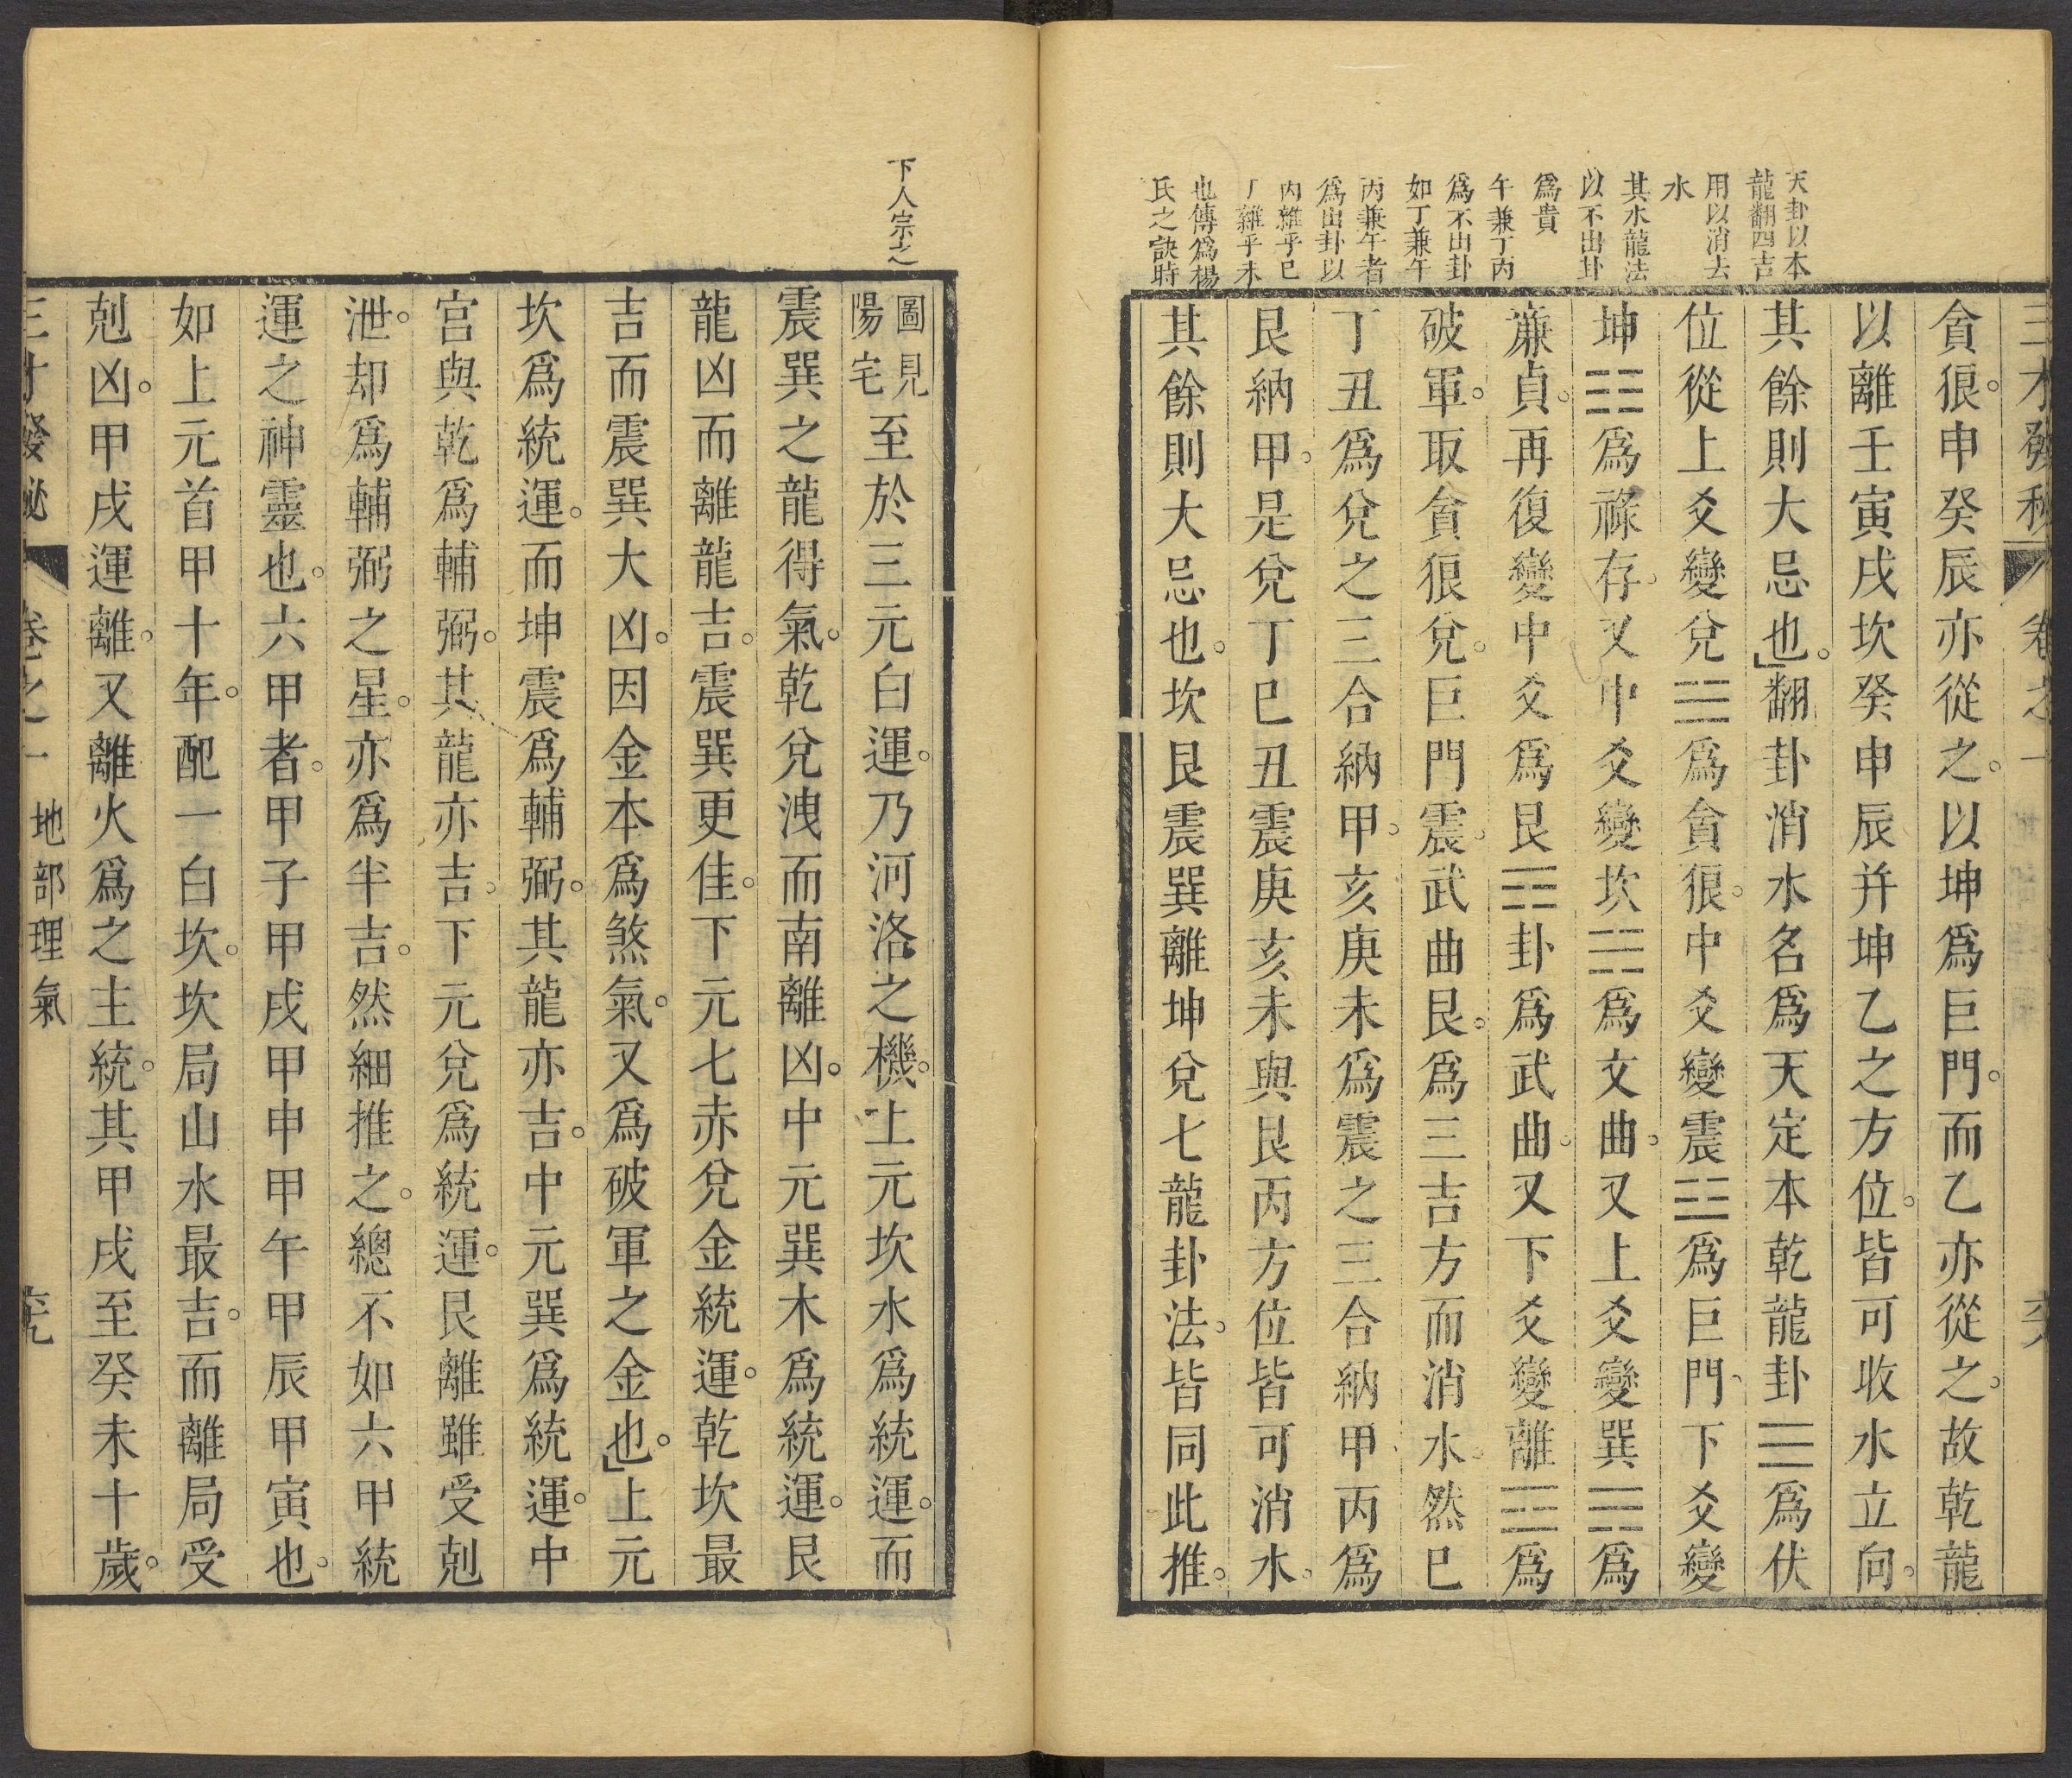 三才發秘 卷之一
貪狼。申癸辰亦從之。以坤爲巨門。而乙亦從之。故乾龍
以離壬寅戌坎癸申辰并坤乙之方位。皆可收水立向。
其餘則大忌也。」翻卦消水名爲天定本乾龍卦☰爲伏
位從上爻變兌☱爲貪狼。中爻變震☳爲巨門、下爻變
坤☷爲祿存。又中爻變坎☵爲文曲。又上爻變巽☴爲
廉貞。再復變中爻爲艮☶卦爲武曲。又下爻變離☲爲
破軍。取貪狼兌。巨門震。武曲艮。爲三吉方而消水。然巳
丁丑爲兌之三合納甲。亥庚未爲震之三合納甲、丙爲
艮納甲。是兌丁巳丑震庚亥未與艮丙方位皆可消水。
其餘則大忌也。坎艮震巽離坤兌七龍卦法。皆同此推。
天卦以本
龍翻四吉
用以消去
水
其水龍法
以不出卦
爲貴
午兼丁丙
爲不出卦
如丁兼午
丙兼午者
爲出卦以
丙雜乎巳
丁雜乎未
也傳爲楊
氏之訣時
下人宗之
圖見
陽宅
至於三元白運。乃河洛之機。上元坎水爲統運。而
震巽之龍得氣。乾兌洩而南離凶。中元巽木爲統運。艮
龍凶而離龍吉。震巽更佳。下元七赤兌金統運。乾坎最
吉而震巽大凶。因金本爲煞氣。又爲破軍之金也。」上元
坎爲統運。而坤震爲輔弼。其龍亦吉。中元巽爲統運。中
宮與乾爲輔弼。其龍亦吉。下元兌爲統運。艮離雖受剋
泄。却爲輔弼之星。亦爲半吉。然細推之。總不如六甲統
運之神靈也。六甲者。甲子甲戌甲申甲午甲辰甲寅也。
如上元首甲十年。配一白坎。坎局山水最吉。而離局受
剋凶。甲戌運離。又離火爲之主統。其甲戌至癸未十歲。
三才發祕 卷之一 地部理氣